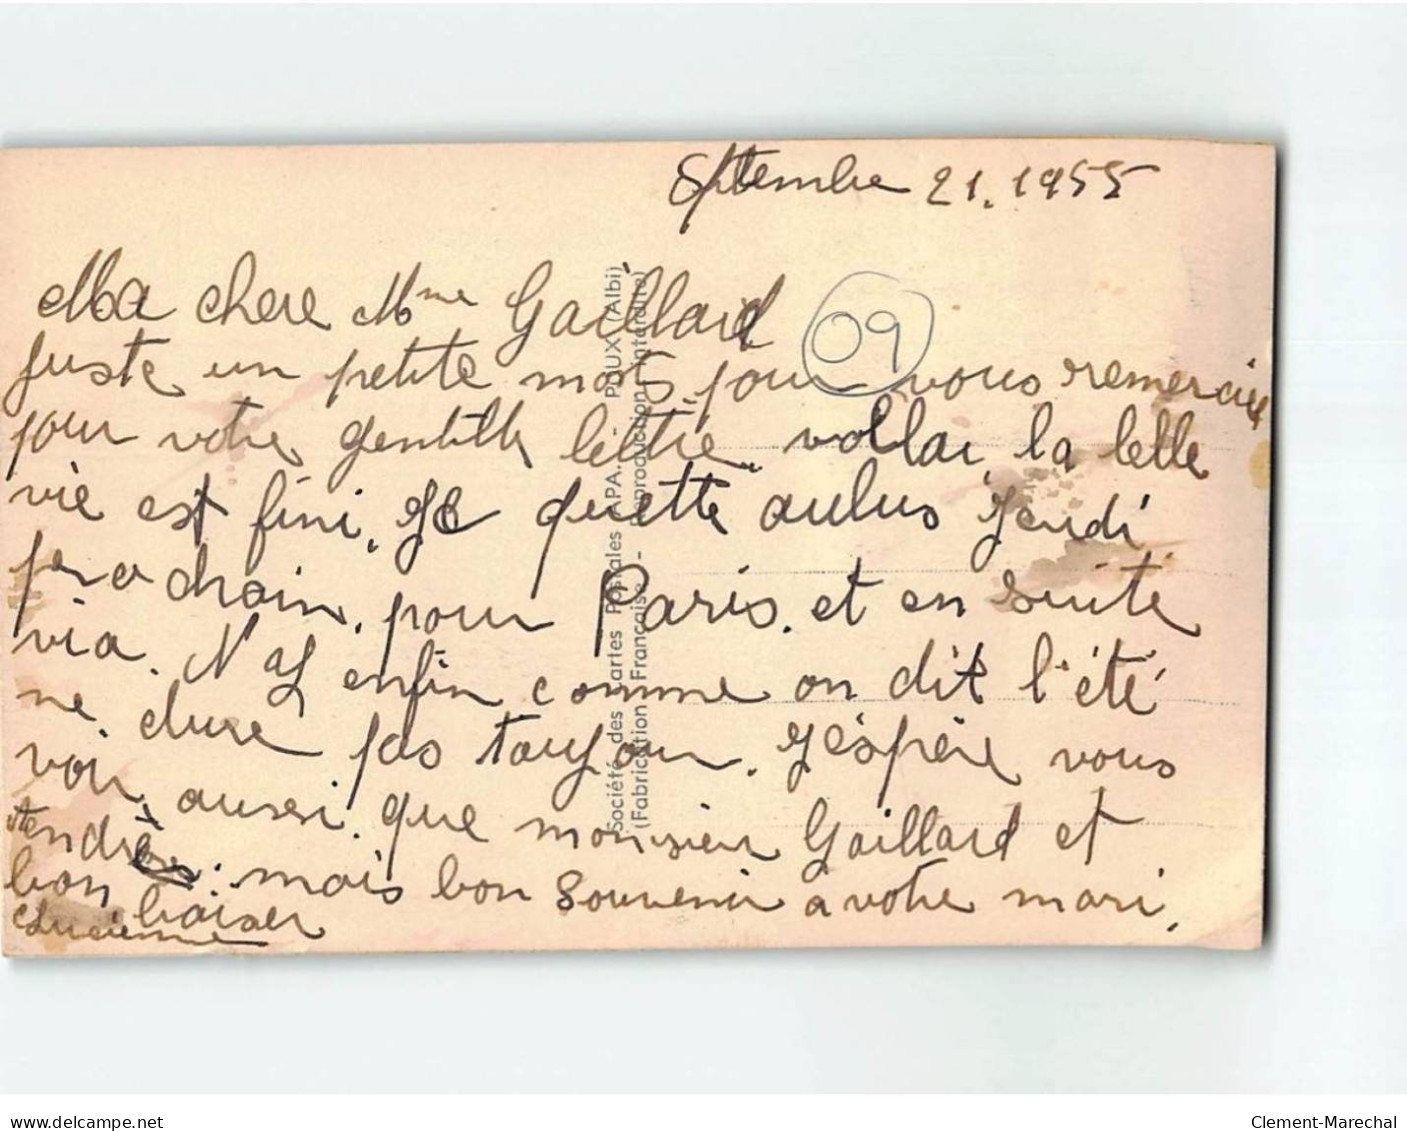 Septembre 21. 1955
Ma chere Mme Gaillard
09
juste un petite mots pour vous remerciee
pour votre gentille lettre. voillai la belle
vie est fini, Je quette aulus Jeudi
prochain, pour Paris. et en suite
via. N Y enfin comme on dit l'été
ne dure pas toujour. J'éspère vous
voir aussi. que monsieur Gaillard et
tendrès: mais bon souvenir a votre mari,
bon baiser
Lucienne
Société des Cartes Postales APA. POUX (Albi)
(Fabrication Française - Reproduction Interdite)
delcampe.net
Clement-Marechal